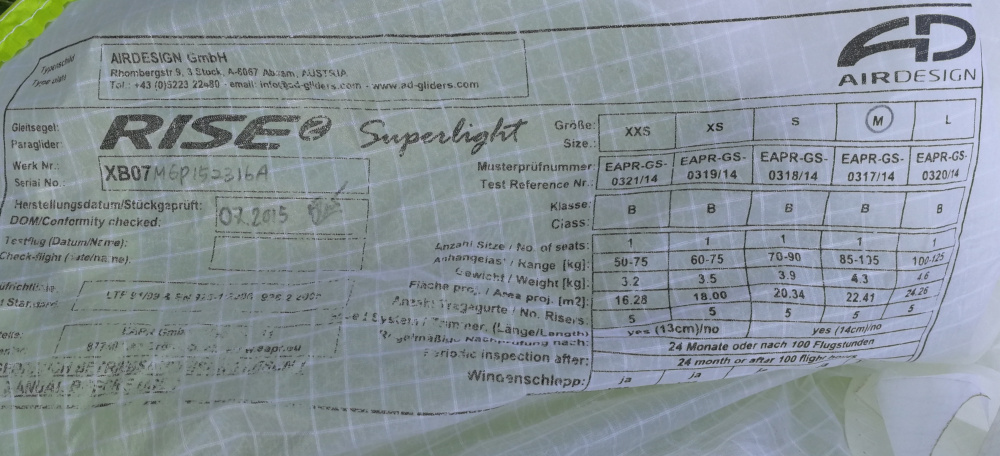 Typenschild
Type plate
AIRDESIGN GmbH
Rhombergstr 9, 3 Stock, A-6067 Absam, AUSTRIA
Tel.: +43 (0)5223 22480 - email: info@ad-gliders.com - www.ad-gliders.com
AD
AIRDESIGN
Gleitsegel:
Paraglider:
RISE2 Superlight
Größe:
Size.:
XXS XS S M L
Werk Nr.:
Serial No.:
XB07 M6P152316A
Musterprüfnummer
Test Reference Nr.:
EAPR-GS-0321/14 EAPR-GS-0319/14 EAPR-GS-0318/14 EAPR-GS-0317/14 EAPR-GS-0320/14
Herstellungsdatum/Stückgeprüft:
DOM/Conformity checked:
07.2015
Klasse:
Class:
B B B B B
Testflug (Datum/Name):
Check-flight (date/name):
Anzahl Sitze / No. of seats:
1 1 1 1 1
/ Range [kg]:
50-75 60-75 70-90 85-105 100-125
Gewicht / Weight [kg]:
3.2 3.5 3.9 4.3 4.6
Fläche proj. / Area proj. [m2]:
16.28 18.00 20.34 22.41 24.26
Anzahl Tragegurte / No. Risers:
5 5 5 5 5
(Länge/Length)
yes (13cm)/no yes (14cm)/no
Regelmäßige Nachprüfung nach:
24 Monate oder nach 100 Flugstunden
Periodic inspection after:
24 month or after 100 flight hours
Windenschlepp:
ja ja